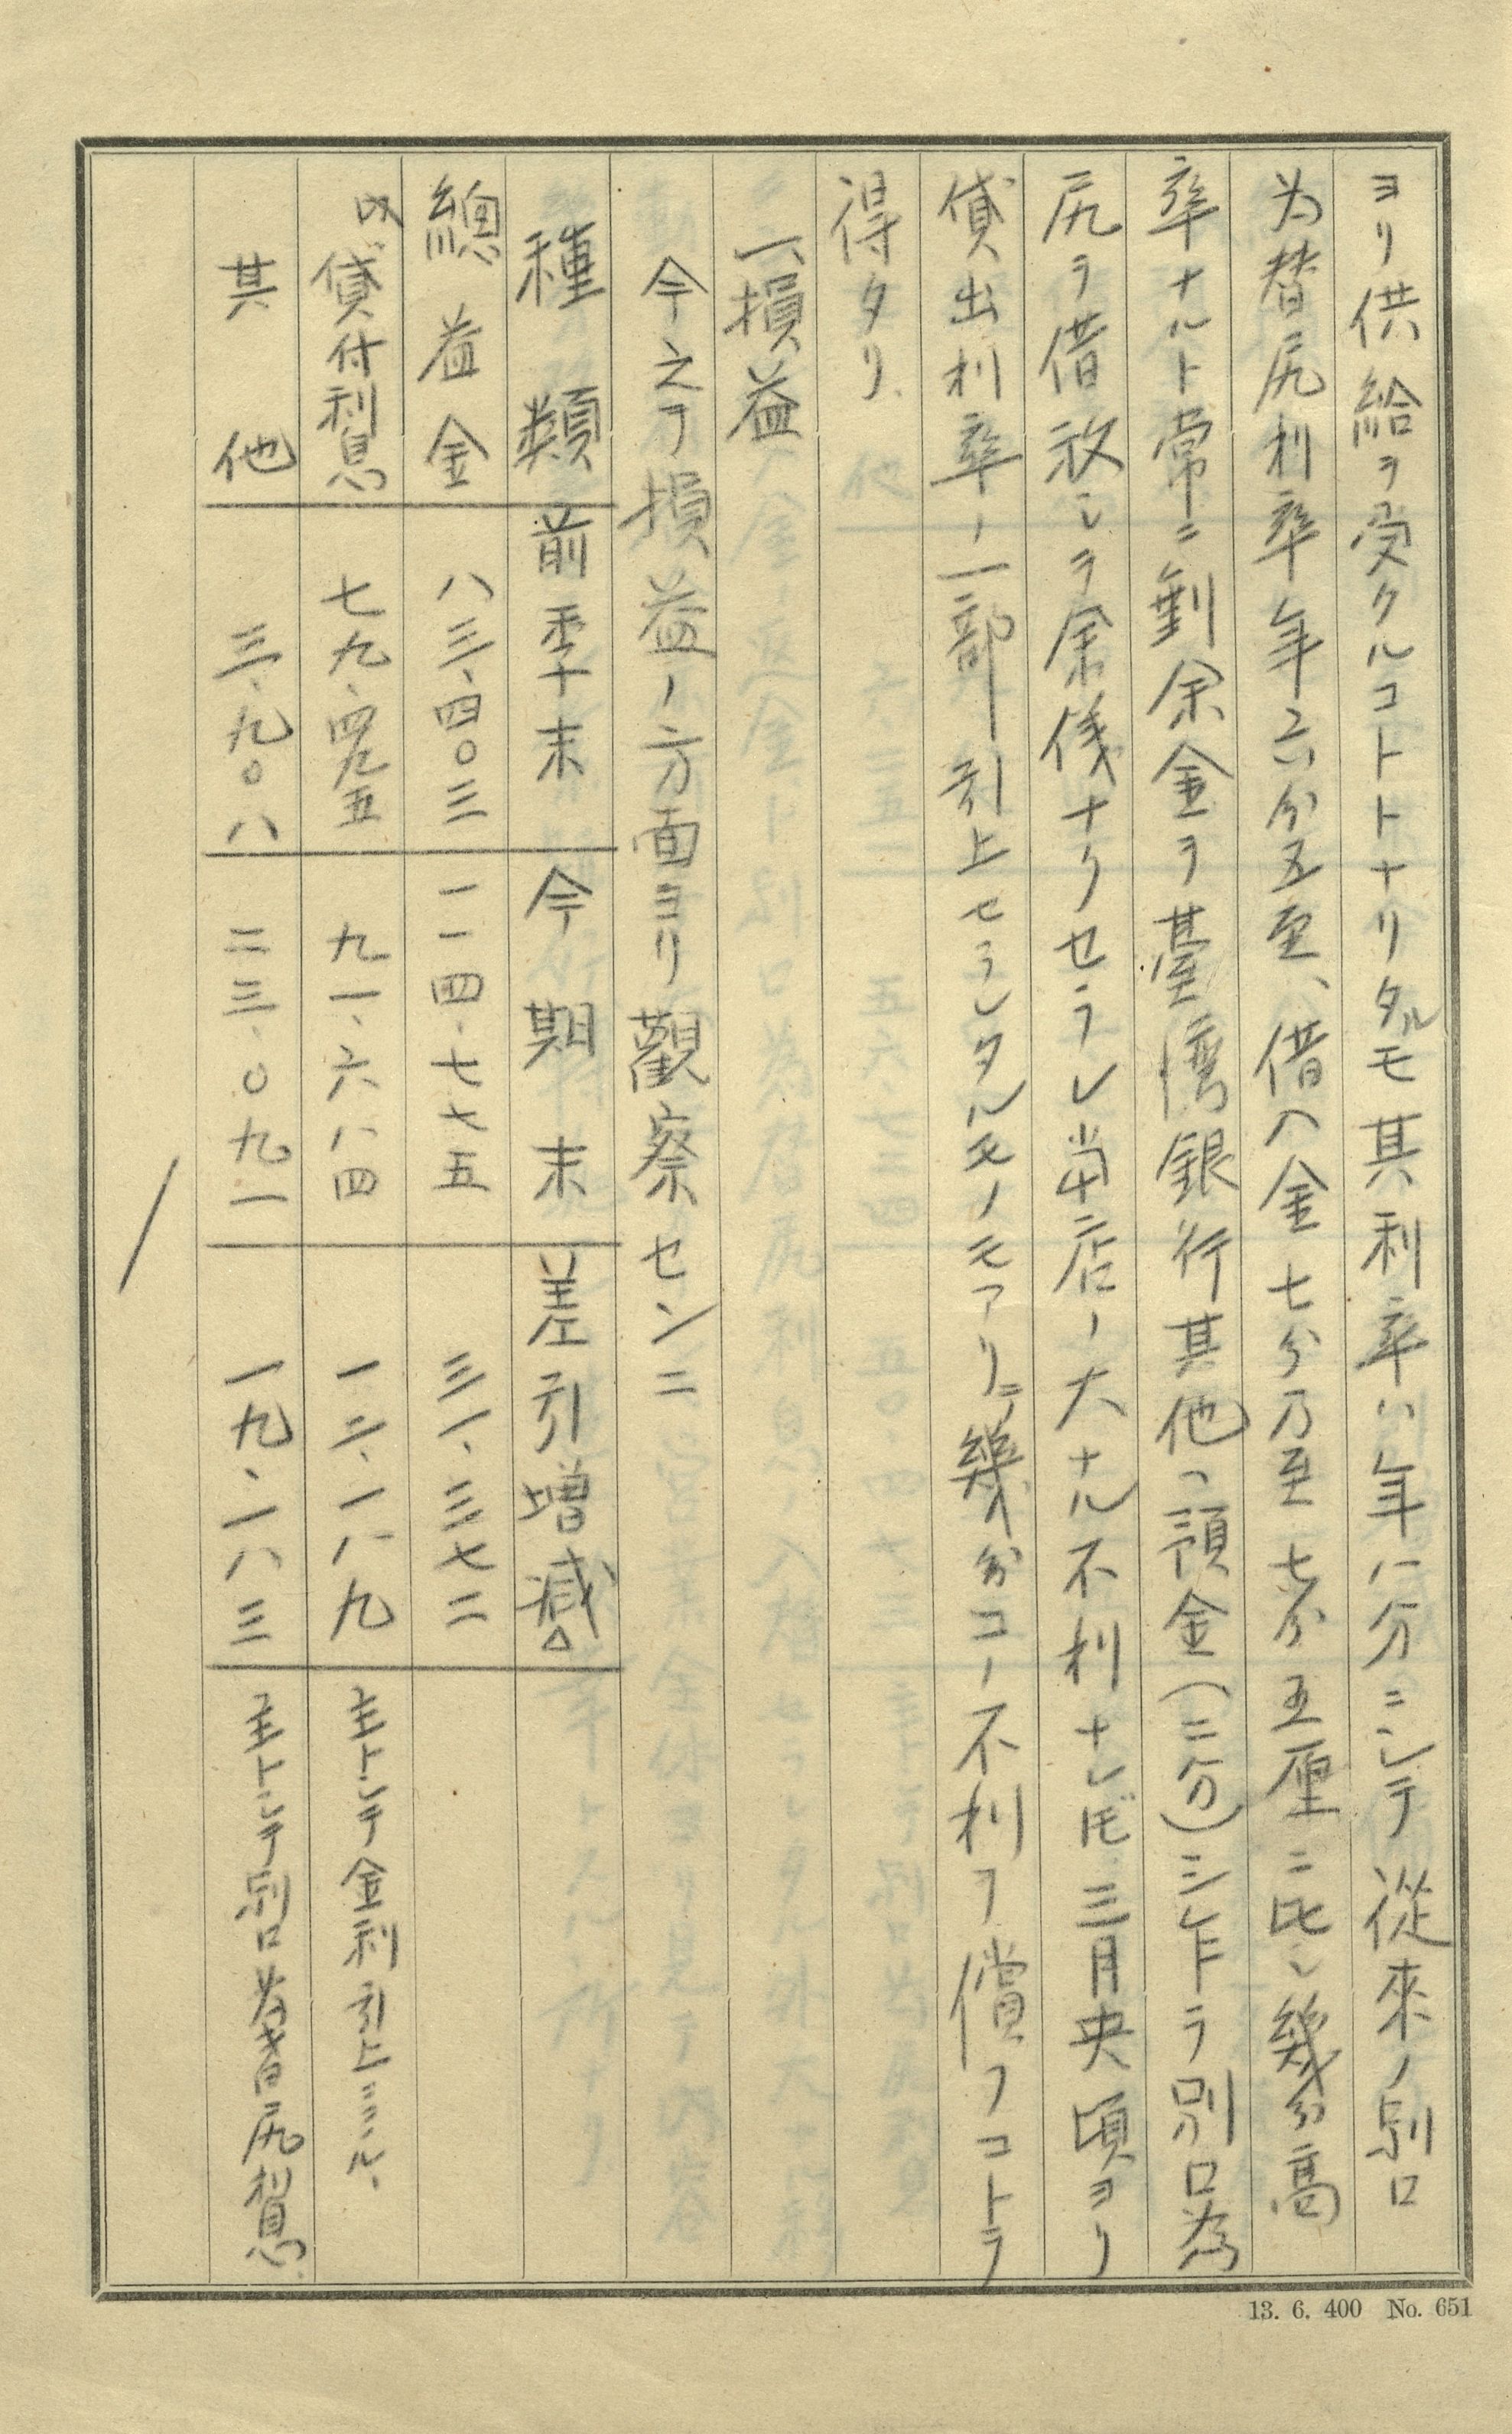 ヨリ供給ヲ受クルコトトナリタルモ其利率ハ年八分ニシテ從來ノ別口
为替尻利率年六分五至、借入金七分乃至七分五厘ニ比シ幾分高
率ナルト常ニ剰余金ヲ臺湾銀行其他ヘ預金(二分)シ乍ラ別口為
尻ヲ借放シヲ余儀ナクセラレ当店ノ大ナル不利ナレ𪜈三月央頃ヨリ
貸出利率ノ一部引上セラレタルモノモアリ幾分コノ不利ヲ償フコトヲ
得タリ
一、損益
今之ヲ損益ノ方面ヨリ觀察センニ
種類 前季末 今期末 差引増減△
總益金 八三、四〇三 一一四、七七五 三一、三七二
内 貸付利息 七九、四九五 九一、六八四 一二、一八九 主トシテ金利引上ニヨル、
其他 三、九〇八 二三、〇九一 一九、一八三 主トシテ別口为替尻利息
13. 6. 400 No. 651